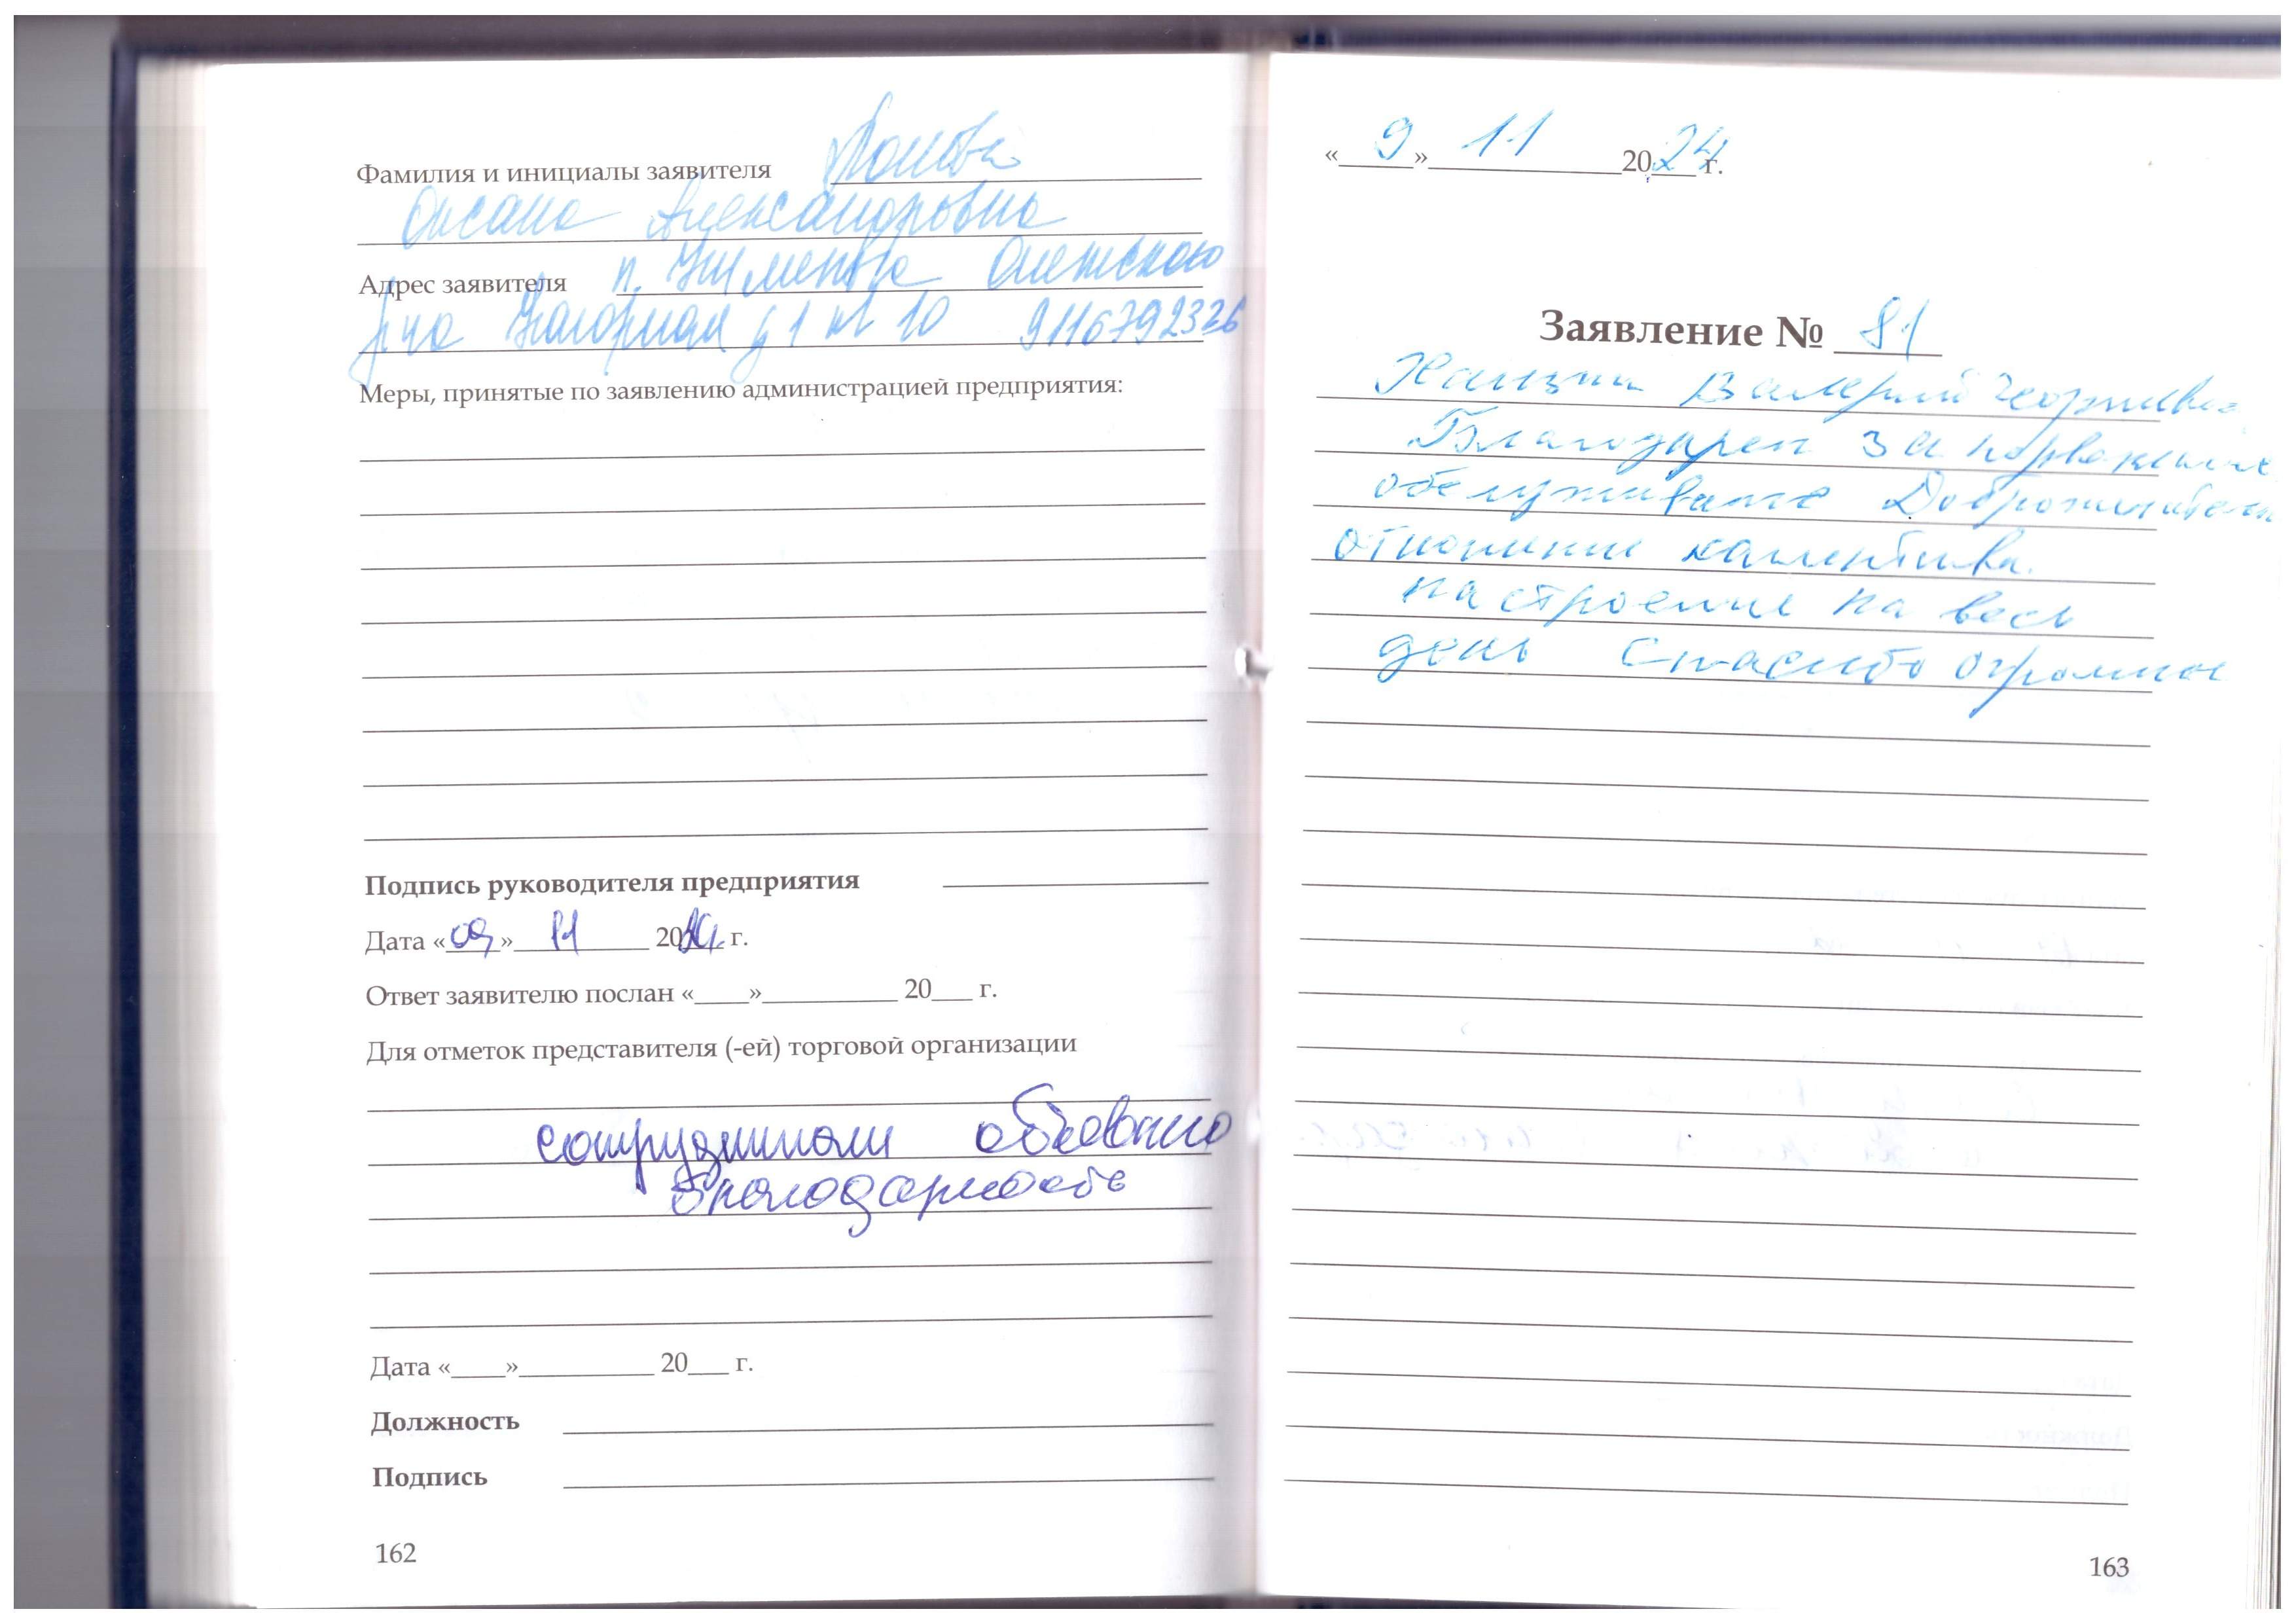 Фамилия и инициалы заявителя
Оксана Александровна
Адрес заявителя п.
д 1 кв 10 9116792326
Меры, принятые по заявлению администрацией предприятия:
Подпись руководителя предприятия
Дата «09» 11 2024 г.
Ответ заявителю послан «____»__________ 20___ г.
Для отметок представителя (-ей) торговой организации
сотрудникам объявлено
благодарность
Дата «____»__________ 20___ г.
Должность
Подпись
162
«9» 11 2024 г.
Заявление № 81
Валерий Георгиевич
Благодарен за
обслуживание
отношение коллектива.
настроение на весь
день Спасибо огромное
163